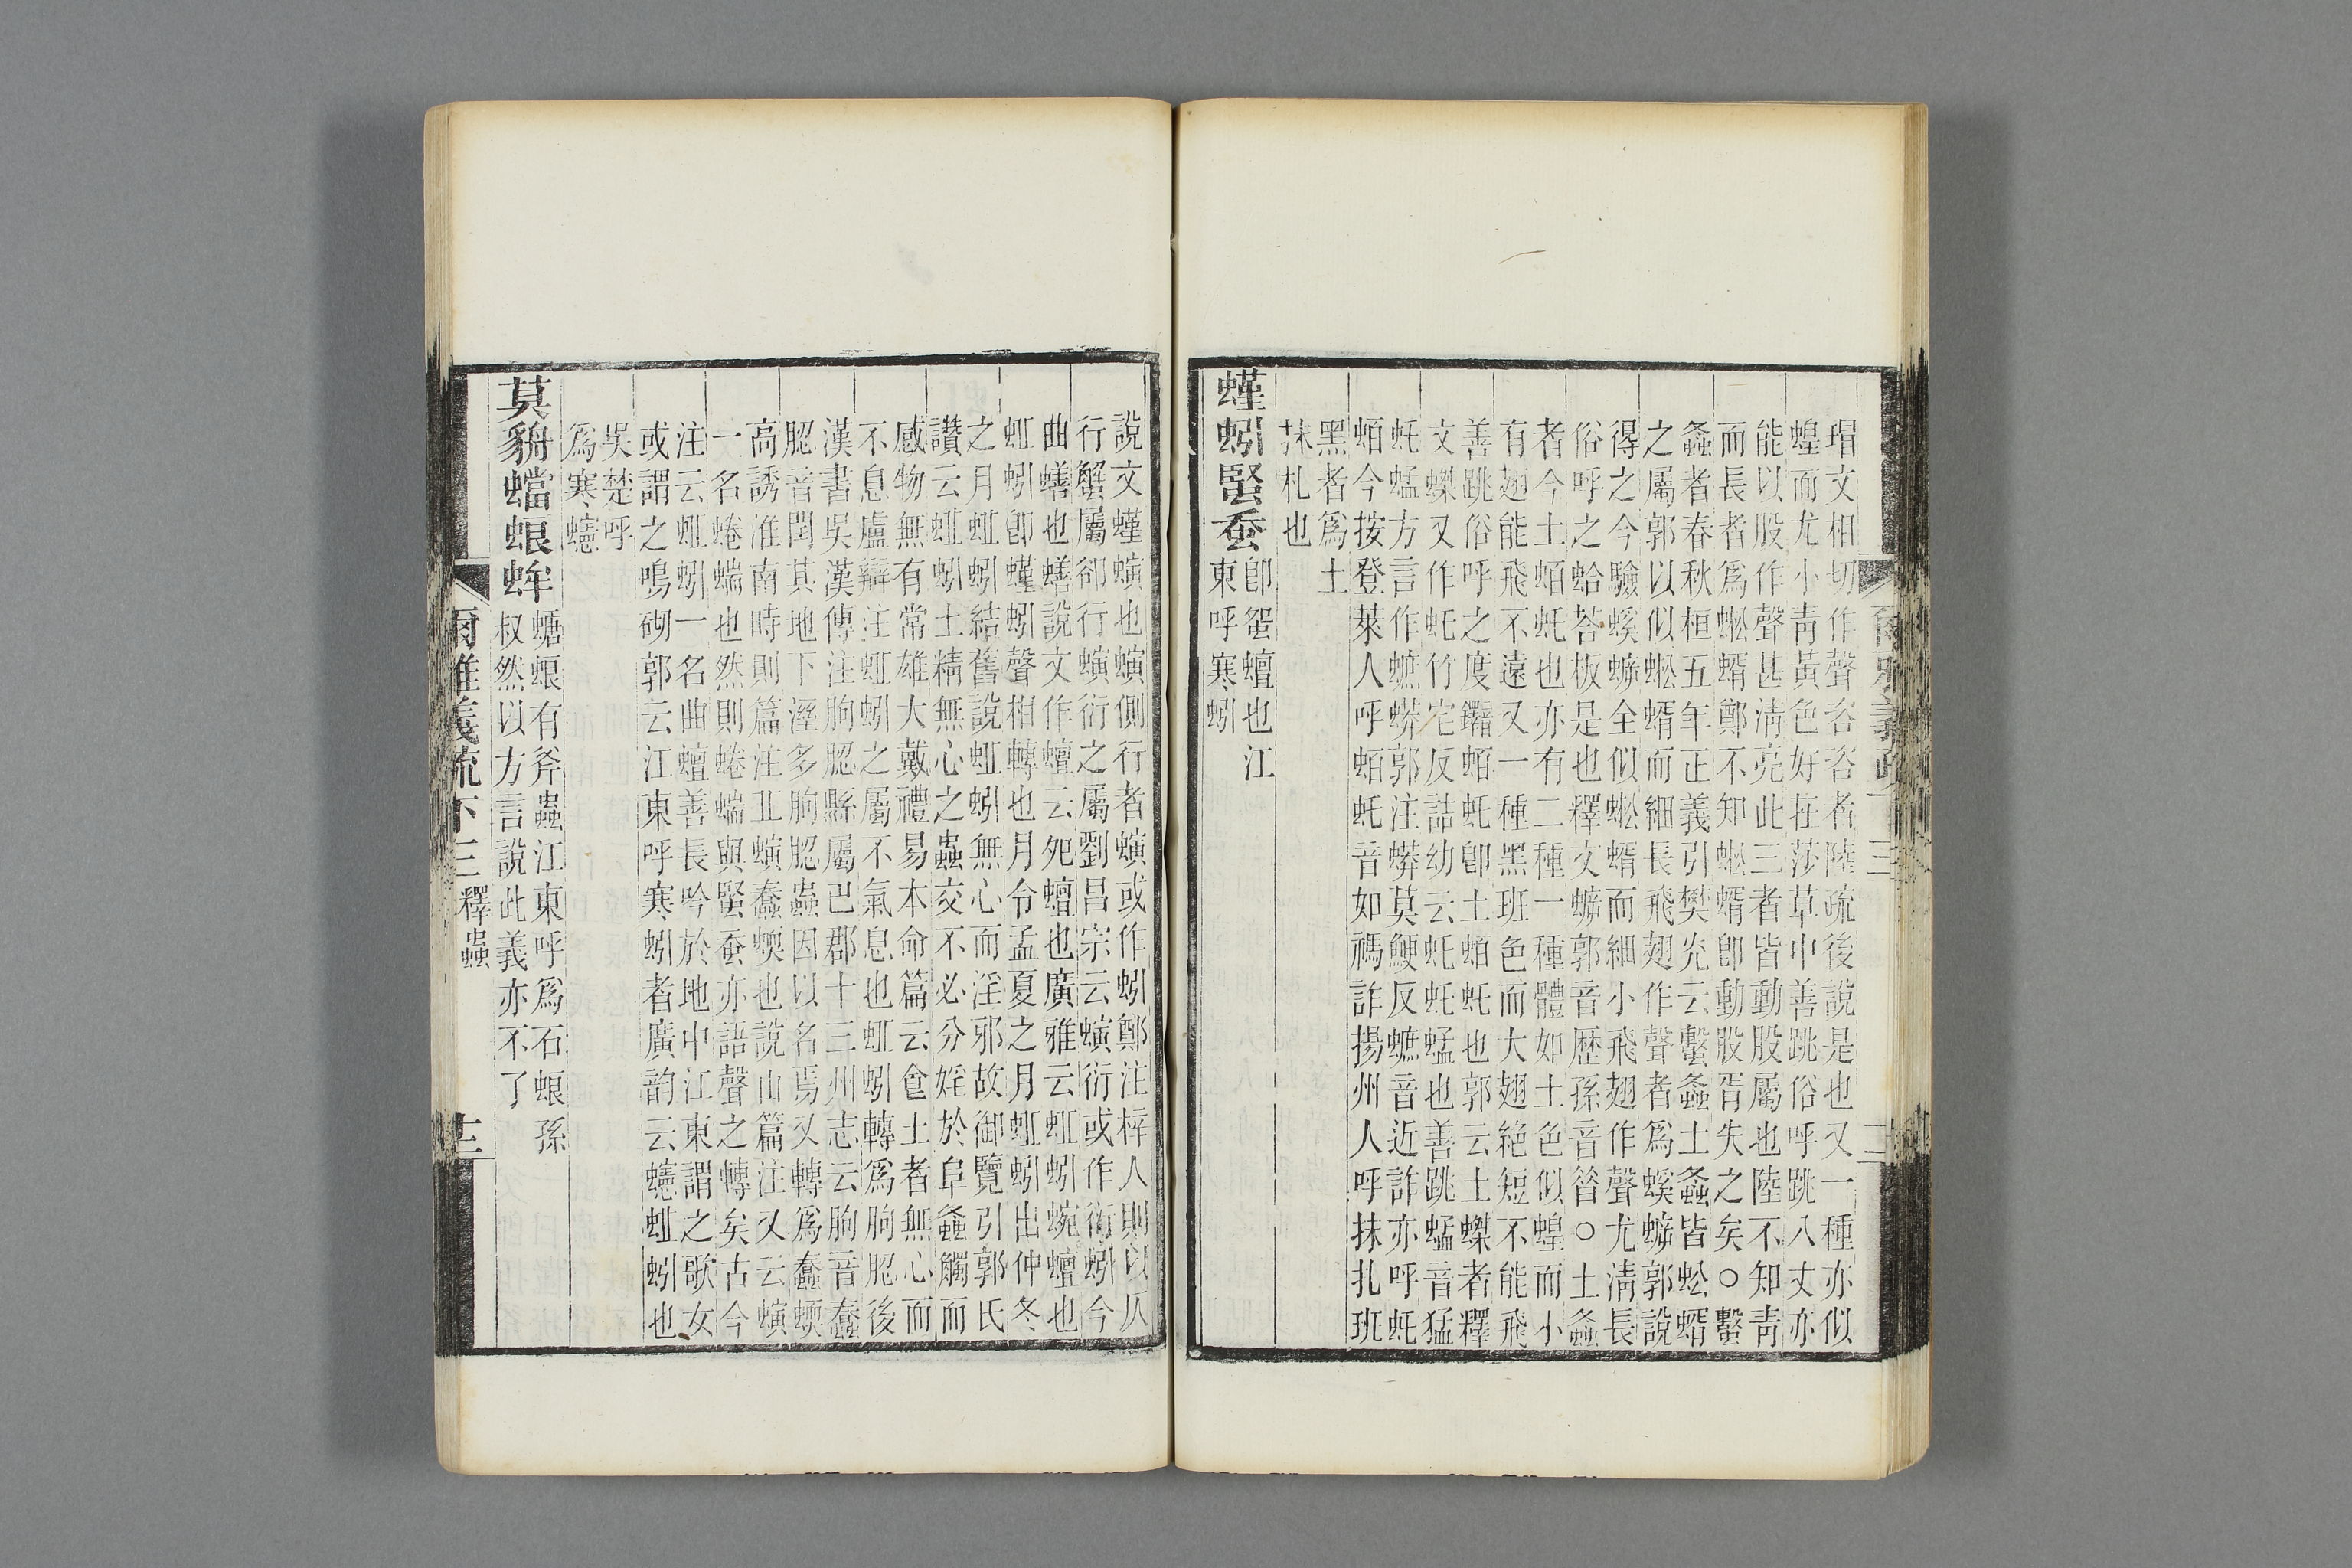 瑁文相切作聲咨咨者陸疏後說是也又一種亦似
蝗而尤小靑黃色好在莎草中善跳俗呼跳八丈亦
能以股作聲甚淸亮此三者皆動股屬也陸不知靑
而長者爲蚣蝑鄭不知蚣蝑卽動股胥失之矣○蠜
螽者春秋桓五年正義引樊光云蠜螽土螽皆蚣蝑
之屬郭以似蚣蝑而細長飛翅作聲者爲螇蚸郭說
得之今驗螇蚸全似蚣蝑而細小飛翅作聲尤淸長
俗呼之蛤荅板是也釋文蚸郭音歷孫音㫺○土螽
者今土蛨虴也亦有二種一種體如土色似蝗而小
有翅能飛不遠又一種黑班色而大翅絶短不能飛
善跳俗呼之度鑘蛨虴卽土蛨虴也郭云土蠂者釋
文蠂又作虴竹宅反詰幼云虴虴蜢也善跳蜢音猛
虴蜢方言作蟅蟒郭注蟒莫鯁反蟅音近詐亦呼虴
蛨今按登萊人呼蛨虴音如禡詐揚州人呼抹扎班
黑者爲土
抹札也
螼蚓䘆蚕
卽䖤蟺也江
東呼寒蚓
說文螼螾也螾側行者螾或作蚓鄭注梓人則以仄
行蟹屬卻行螾衍之屬劉昌宗云螾衍或作衍蚓今
曲蟮也蟮說文作蟺云夗蟺也廣雅云蚯蚓蜿蟺也
蚯蚓卽螼蚓聲相轉也月令孟夏之月蚯蚓出仲冬
之月蚯蚓結舊說蚯蚓無心而淫邪故御覽引郭氏
讚云蚯蚓土精無心之蟲交不必分婬於阜螽觸而
感物無有常雄大戴禮易本命篇云食土者無心而
不息盧辯注蚯蚓之屬不氣息也蚯蚓轉爲朐䏰後
漢書吳漢傳注朐䏰縣屬巴郡十三州志云朐音蠢
䏰音閏其地下溼多朐䏰蟲因以名焉又轉爲蠢蝡
高誘淮南時則篇注丘螾蠢蝡也說山篇注又云螾
一名蜷端也然則蜷端與䘆蚕亦語聲之轉矣古今
注云蚯蚓一名曲蟺善長吟於地中江東謂之歌女
或謂之鳴砌郭云江東呼寒蚓者廣韵云蟪蚯蚓也
吳楚呼
爲寒蟪
莫貈蟷蜋蛑
螗蜋有斧蟲江東呼爲石蜋孫
叔然以方言說此義亦不了
爾雅義疏下三 釋蟲 十二